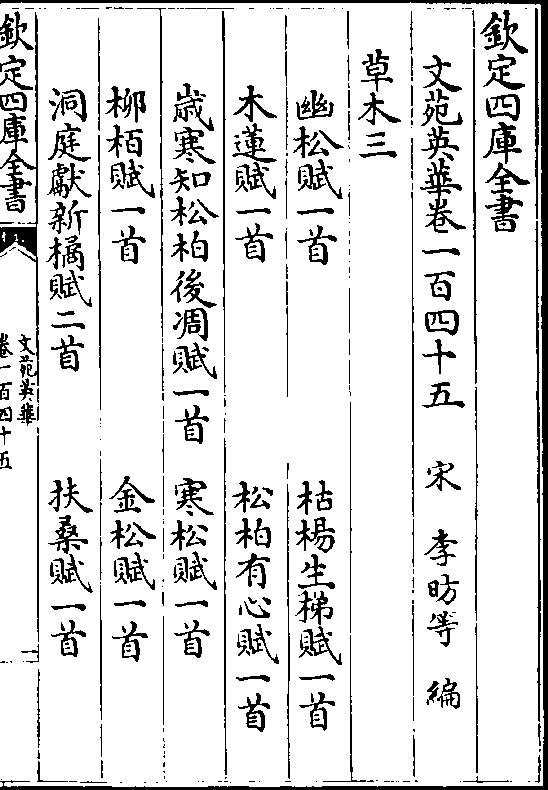 欽定四庫全書
文苑英華卷一百四十五　宋　李昉等　編
草木三
幽松賦一首　枯楊生梯賦一首
木蓮賦一首　松柏有心賦一首
歳寒知松柏後凋賦一首　寒松賦一首
柳栢賦一首　金松賦一首
洞庭獻新橘賦二首　扶桑賦一首
欽定四庫全書
文苑英華
卷一百四十五
一